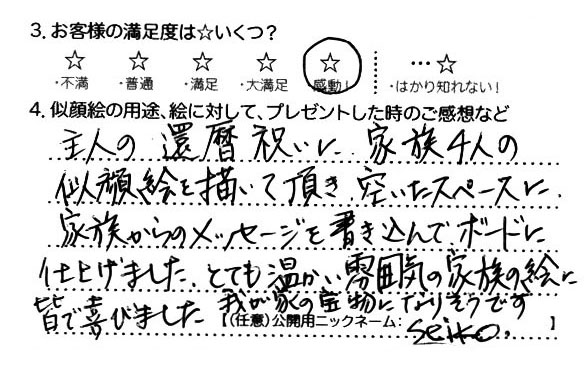 3. お客様の満足度は☆いくつ?
☆ ☆ ☆ ☆ ☆ …☆
・不満 ・普通 ・満足 ・大満足 感動! ・はかり知れない!
4. 似顔絵の用途、絵に対して、プレゼントした時のご感想など
主人の還暦祝いに家族4人の
似顔絵を描いて頂き、空いたスペースに
家族からのメッセージを書き込んでボードに
仕上げました。とても温かい雰囲気の家族の絵に
皆で喜びました 我が家の宝物になりそうです
【(任意)公開用ニックネーム: seiko. 】